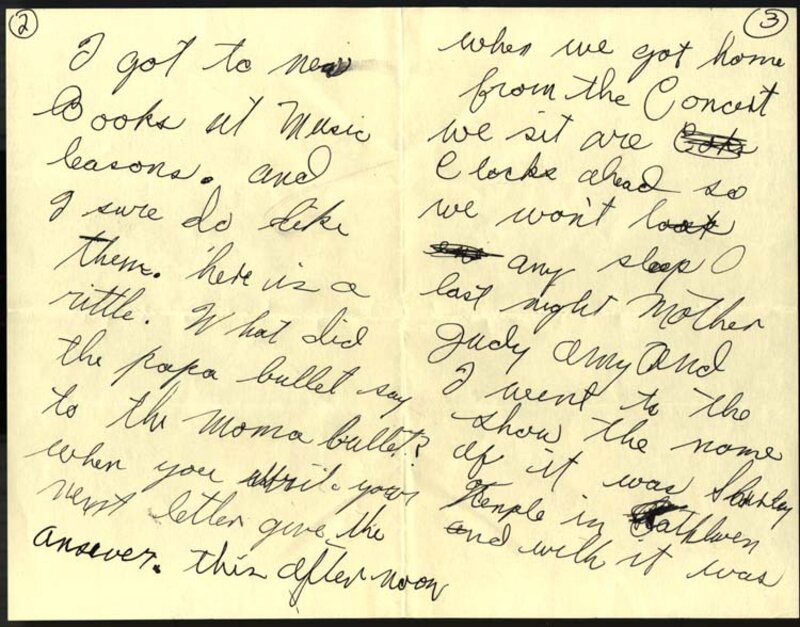 2
I got to new
Books at Music
leasons. and
I sure do like
them. here is a
rittle. What did
the papa bullet say
to the moma bullet?
when you write your
next letter give the
ansever. this after noon
3
when we got home
from the Concert
we sit are
Clocks ahead so
we won't
any sleep
last night Mother
Judy amy and
I went to the
show the name
of it was Shirley
Temple in Kathleen
and with it was